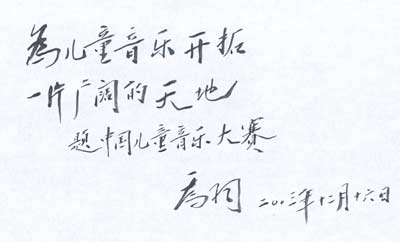 為儿童音乐开拓
一片广阔的天地
题中国儿童音乐大赛
二〇〇三年十二月十六日